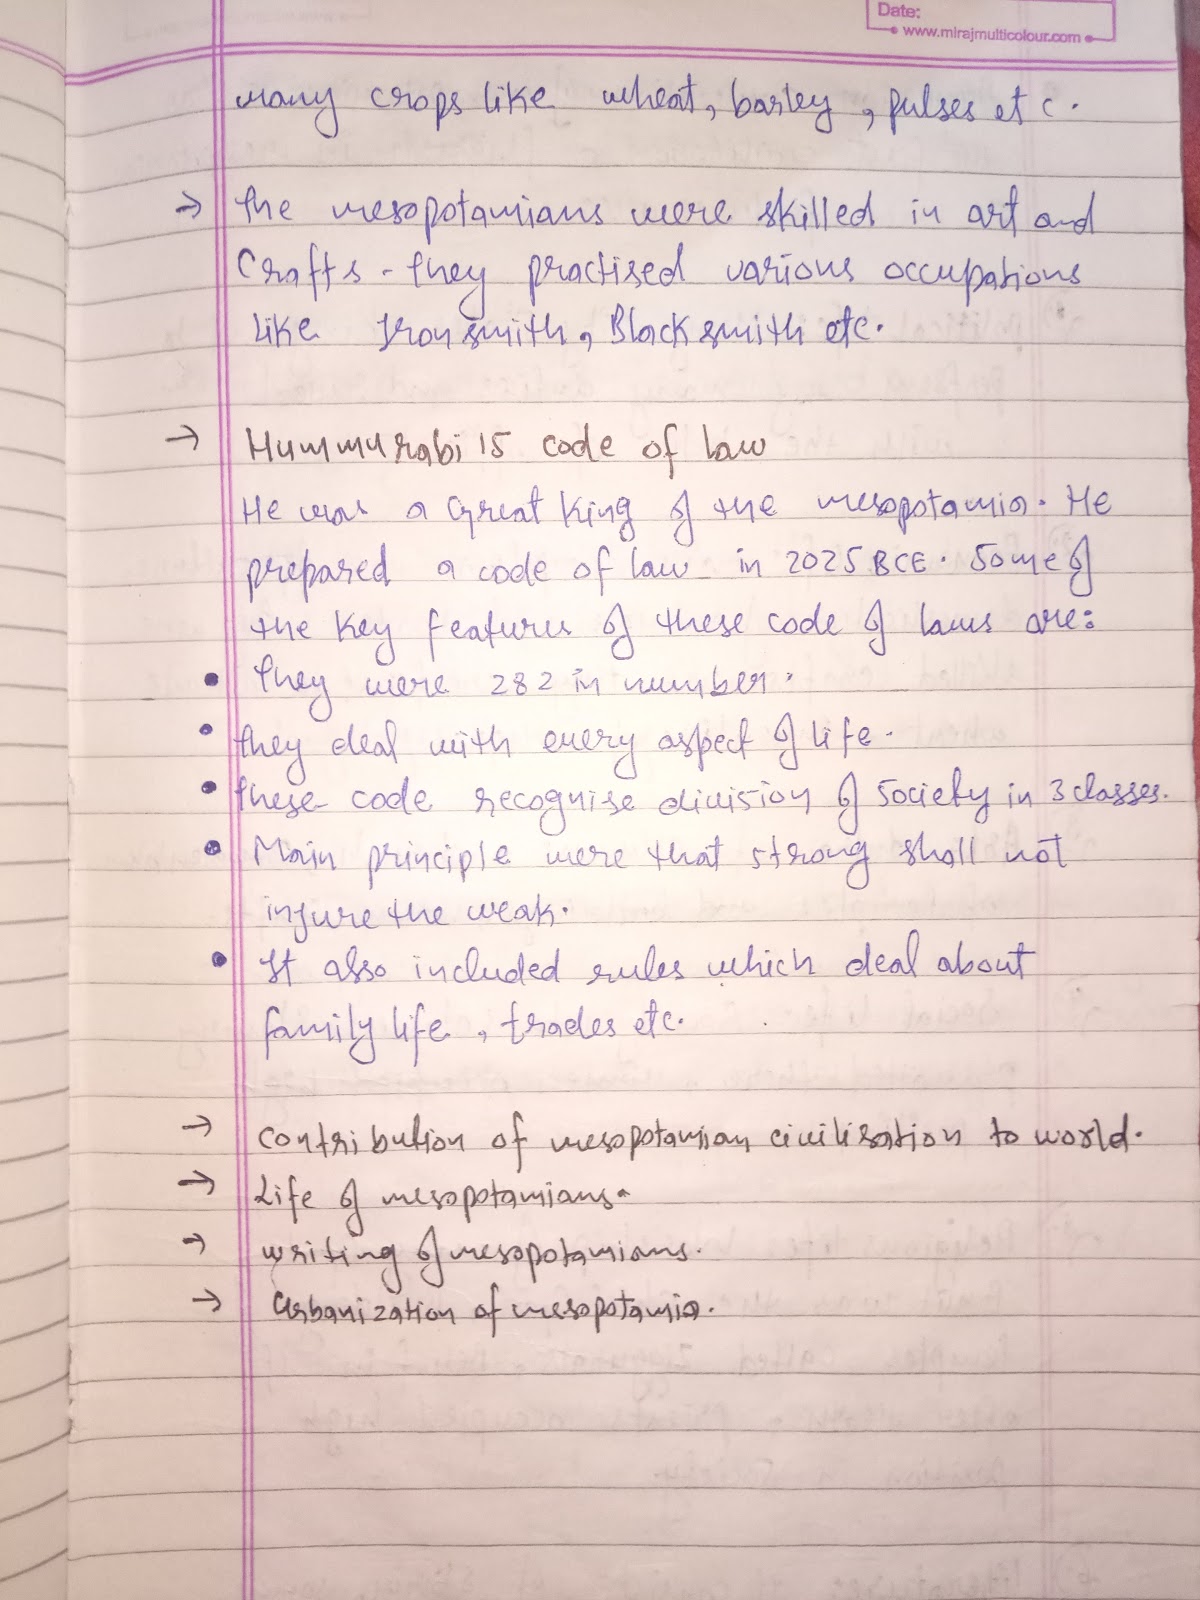 Date:
www.mirajmulticolour.com
many crops like wheat, barley, pulses etc.
→ the mesopotamians were skilled in art and
Crafts. they practised various occupations
like Iron smith, Black smith etc.
→ Hummurabi 15 code of law
He was a Great King of the mesopotamia. He
prepared a code of law in 2025 BCE. Some of
the key features of these code of laws are:
• they were 282 in number.
• they deal with every aspect of life.
• these code recognise division of society in 3 classes.
• Main principle were that strong shall not
injure the weak.
• It also included rules which deal about
family life, trades etc.
→ contribution of mesopotamian civilisation to world.
→ Life of mesopotamians.
→ writing of mesopotamians.
→ Urbanization of mesopotamia.